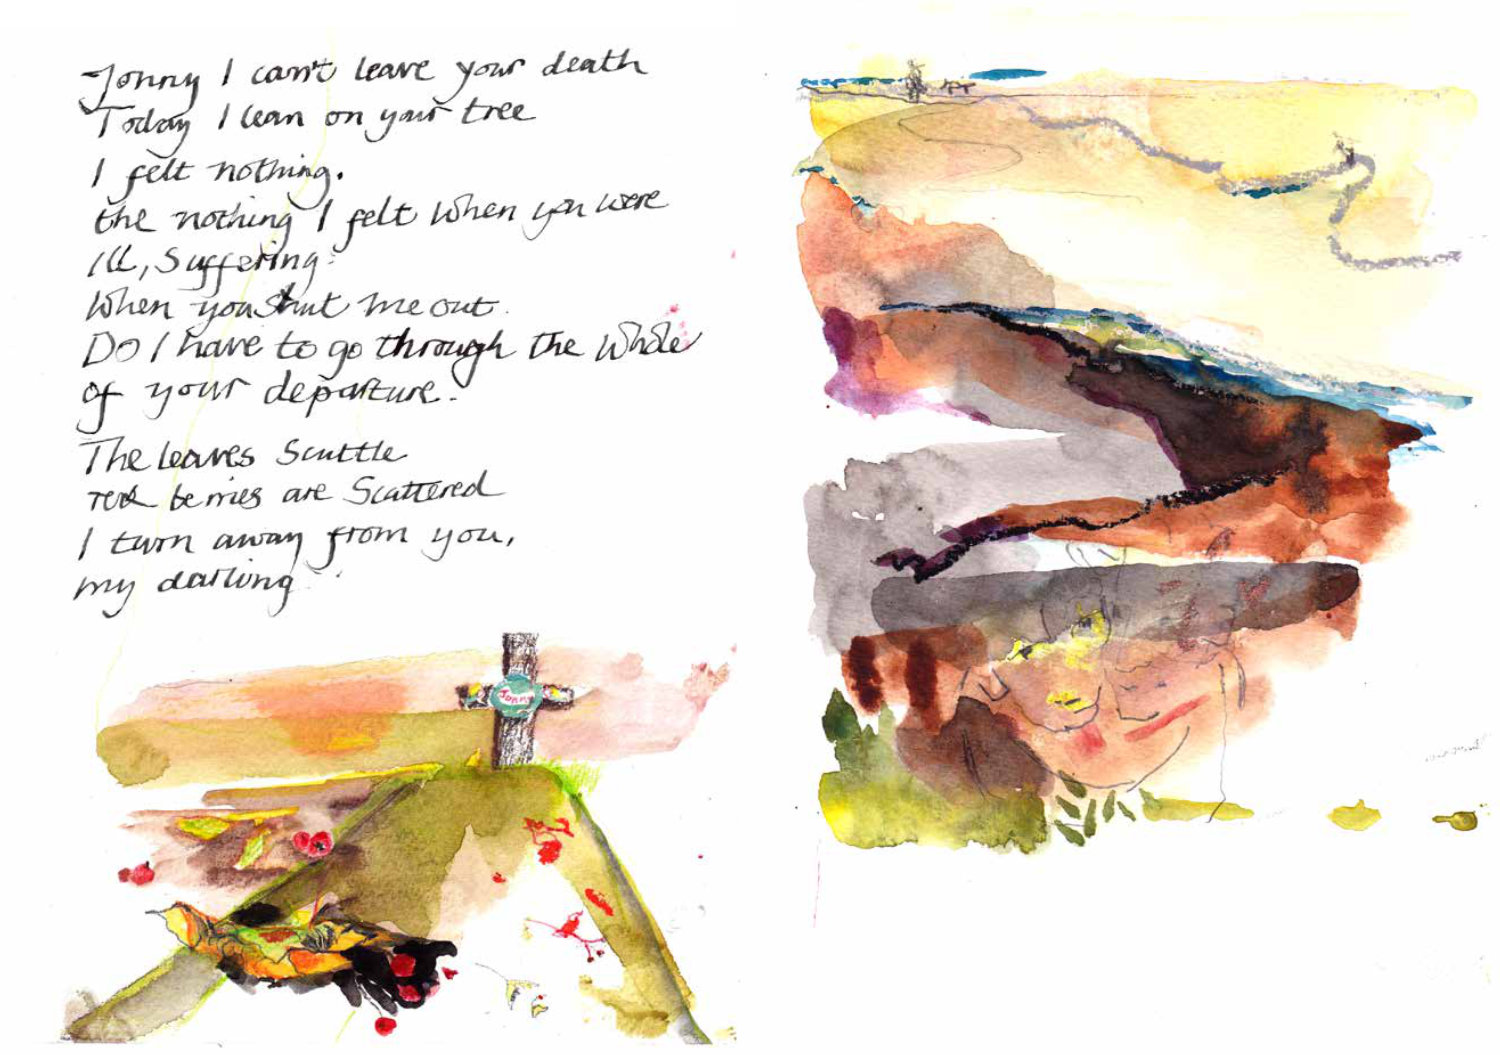 Jonny I can't leave your death
Today I lean on your tree
I felt nothing.
the nothing I felt when you were
ill, suffering
When you shut me out.
Do I have to go through the whole
of your departure.
The leaves scuttle
red berries are scattered
I turn away from you,
my darling.
Jonny